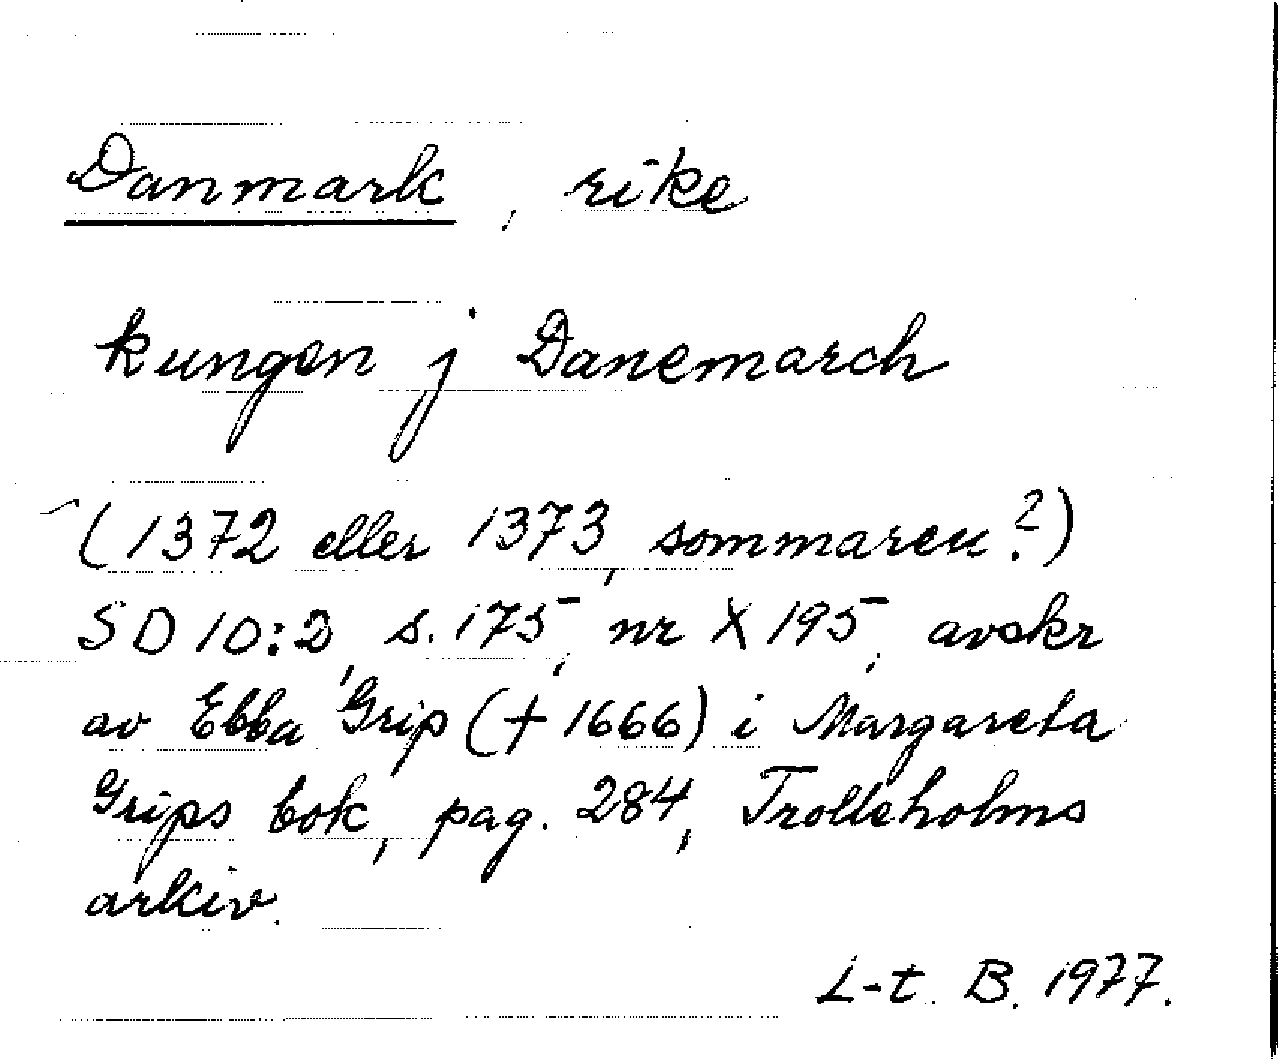 Danmark, rike
kungen j Danemarch
(1372 eller 1373, sommaren?)
SD 10:2, s. 175, nr X 195, avskr
av Ebba Grip († 1666) i Margareta
Grips bok, pag. 284, Trolleholms
arkiv.
L-t. B. 1977.